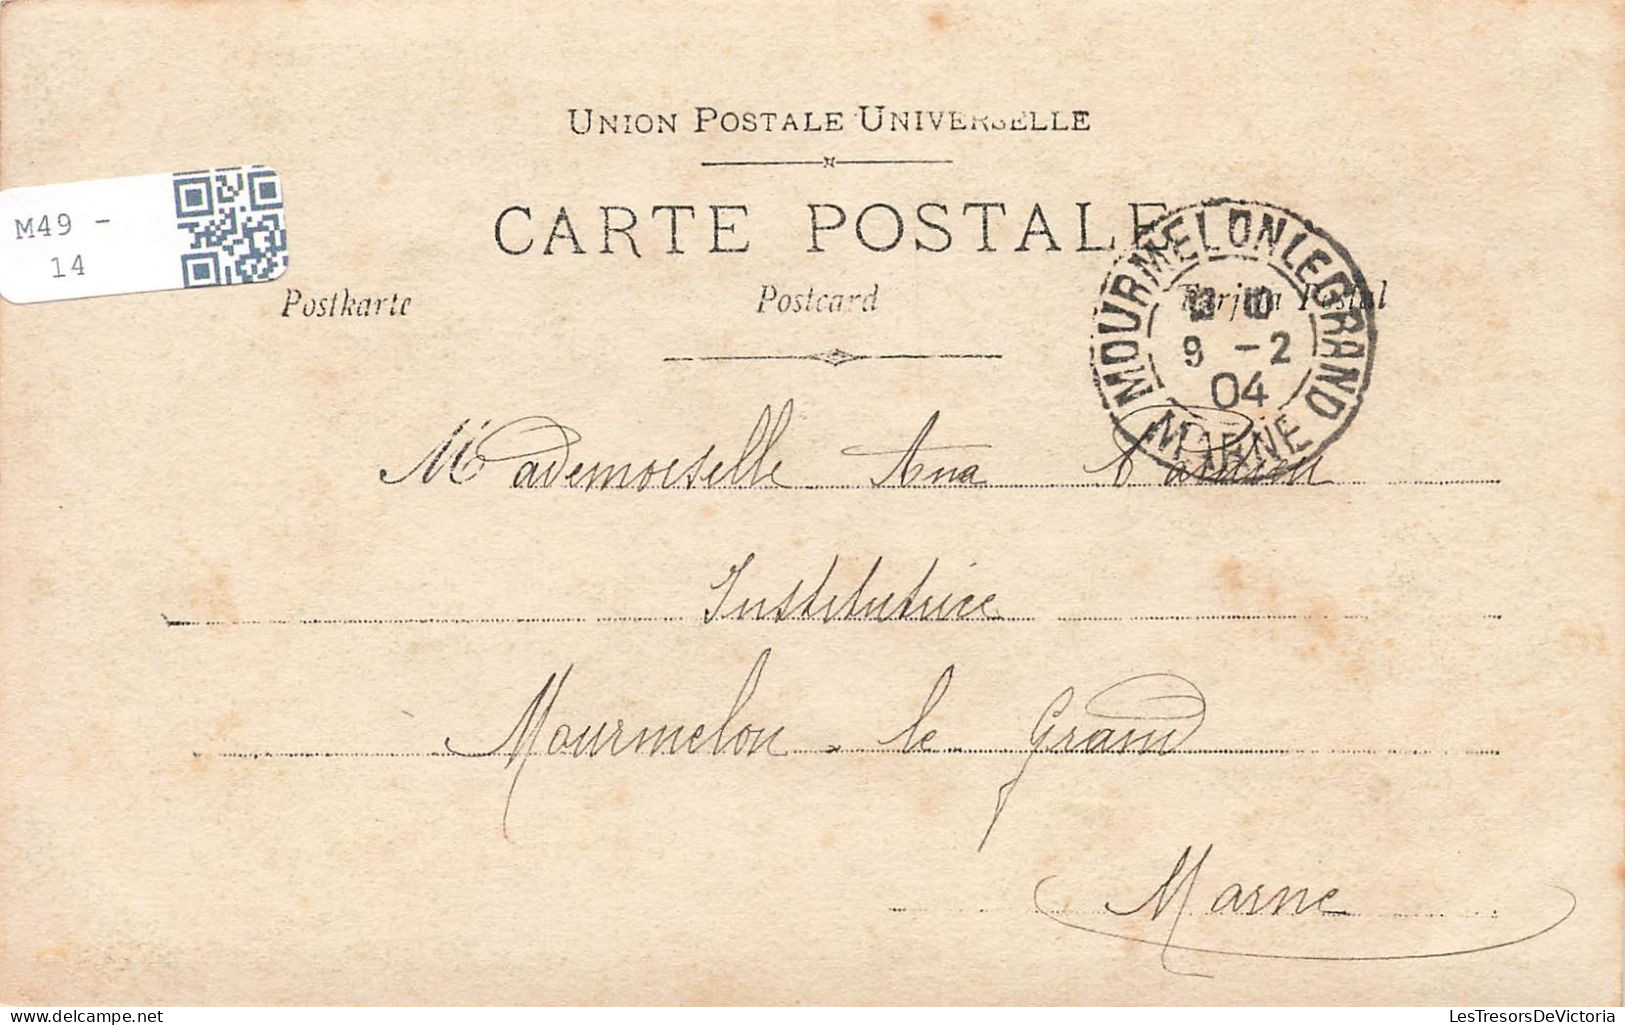 UNION POSTALE UNIVERSELLE
CARTE POSTALE
M49 -
14
Postkarte Postcard Tarjeta Postal
MOURMELON LE GRAND
9 -2
04
MARNE
Mademoiselle Ana
Institutrice
Mourmelon-le-Grand
Marne
delcampe.net
LesTresorsDeVictoria